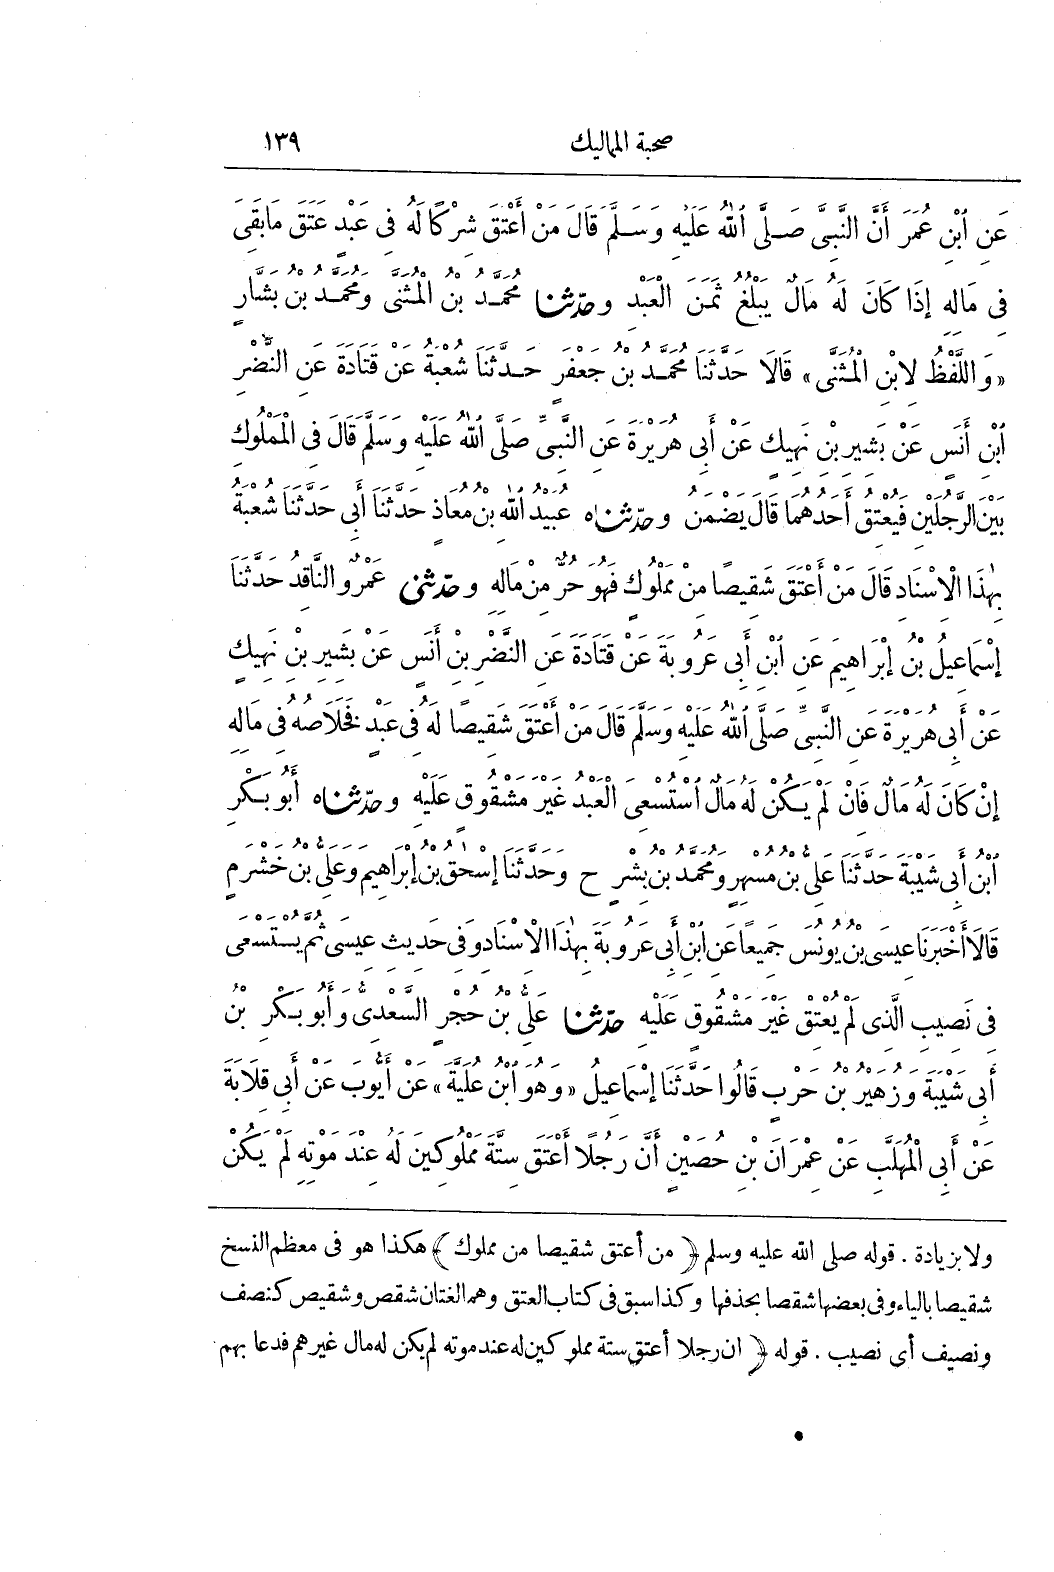 صحبة المماليك ١٣٩
عَنِ ٱبْنِ عُمَرَ أَنَّ النَّبِىَّ صَلَّى ٱللهُ عَلَيْهِ وَسَلَّمَ قَالَ مَنْ أَعْتَقَ شِرْكًا لَهُ فِى عَبْدٍ عَتَقَ مَا بَقِىَ
فِى مَالِهِ إِذَا كَانَ لَهُ مَالٌ يَبْلُغُ ثَمَنَ الْعَبْدِ وحَدَّثَنَا مُحَمَّدُ بْنُ الْمُثَنَّى وَمُحَمَّدُ بْنُ بَشَّارٍ
«وَاللَّفْظُ لِابْنِ الْمُثَنَّى» قَالَا حَدَّثَنَا مُحَمَّدُ بْنُ جَعْفَرٍ حَدَّثَنَا شُعْبَةُ عَنْ قَتَادَةَ عَنِ النَّضْرِ
ٱبْنِ أَنَسٍ عَنْ بَشِيرِ بْنِ نَهِيكٍ عَنْ أَبِى هُرَيْرَةَ عَنِ النَّبِىِّ صَلَّى ٱللهُ عَلَيْهِ وَسَلَّمَ قَالَ فِى الْمَمْلُوكِ
بَيْنَ الرَّجُلَيْنِ فَيُعْتِقُ أَحَدُهُمَا قَالَ يَضْمَنُ وحَدَّثَنَاه عُبَيْدُ اللهِ بْنُ مُعَاذٍ حَدَّثَنَا أَبِى حَدَّثَنَا شُعْبَةُ
بِهٰذَا الْإِسْنَادِ قَالَ مَنْ أَعْتَقَ شَقِيصًا مِنْ مَمْلُوكٍ فَهُوَ حُرٌّ مِنْ مَالِهِ وحَدَّثَنِى عَمْرٌو النَّاقِدُ حَدَّثَنَا
إِسْمَاعِيلُ بْنُ إِبْرَاهِيمَ عَنِ ٱبْنِ أَبِى عَرُوبَةَ عَنْ قَتَادَةَ عَنِ النَّضْرِ بْنِ أَنَسٍ عَنْ بَشِيرِ بْنِ نَهِيكٍ
عَنْ أَبِى هُرَيْرَةَ عَنِ النَّبِىِّ صَلَّى ٱللهُ عَلَيْهِ وَسَلَّمَ قَالَ مَنْ أَعْتَقَ شَقِيصًا لَهُ فِى عَبْدٍ فَخَلَاصُهُ فِى مَالِهِ
إِنْ كَانَ لَهُ مَالٌ فَإِنْ لَمْ يَكُنْ لَهُ مَالٌ ٱسْتُسْعِىَ الْعَبْدُ غَيْرَ مَشْقُوقٍ عَلَيْهِ وحَدَّثَنَاه أَبُو بَكْرِ
ٱبْنُ أَبِى شَيْبَةَ حَدَّثَنَا عَلِىُّ بْنُ مُسْهِرٍ وَمُحَمَّدُ بْنُ بِشْرٍ ح وَحَدَّثَنَا إِسْحٰقُ بْنُ إِبْرَاهِيمَ وَعَلِىُّ بْنُ خَشْرَمٍ
قَالَا أَخْبَرَنَا عِيسَى بْنُ يُونُسَ جَمِيعًا عَنِ ٱبْنِ أَبِى عَرُوبَةَ بِهٰذَا الْإِسْنَادِ وَفِى حَدِيثِ عِيسَى ثُمَّ يُسْتَسْعَى
فِى نَصِيبِ الَّذِى لَمْ يُعْتِقْ غَيْرَ مَشْقُوقٍ عَلَيْهِ حَدَّثَنَا عَلِىُّ بْنُ حُجْرٍ السَّعْدِىُّ وَأَبُو بَكْرِ بْنُ
أَبِى شَيْبَةَ وَزُهَيْرُ بْنُ حَرْبٍ قَالُوا حَدَّثَنَا إِسْمَاعِيلُ «وَهُوَ ٱبْنُ عُلَيَّةَ» عَنْ أَيُّوبَ عَنْ أَبِى قِلَابَةَ
عَنْ أَبِى الْمُهَلَّبِ عَنْ عِمْرَانَ بْنِ حُصَيْنٍ أَنَّ رَجُلًا أَعْتَقَ سِتَّةَ مَمْلُوكِينَ لَهُ عِنْدَ مَوْتِهِ لَمْ يَكُنْ
ولا بزيادة . قوله صلى الله عليه وسلم ﴿من أعتق شقيصا من مملوك﴾ هكذا هو فى معظم النسخ
شقيصا بالياء وفى بعضها شقصا بحذفها وكذا سبق فى كتاب العتق وهما لغتان شقص وشقيص كنصف
ونصيف أى نصيب . قوله ﴿ان رجلا أعتق ستة مملوكين له عند موته لم يكن له مال غيرهم فدعا بهم